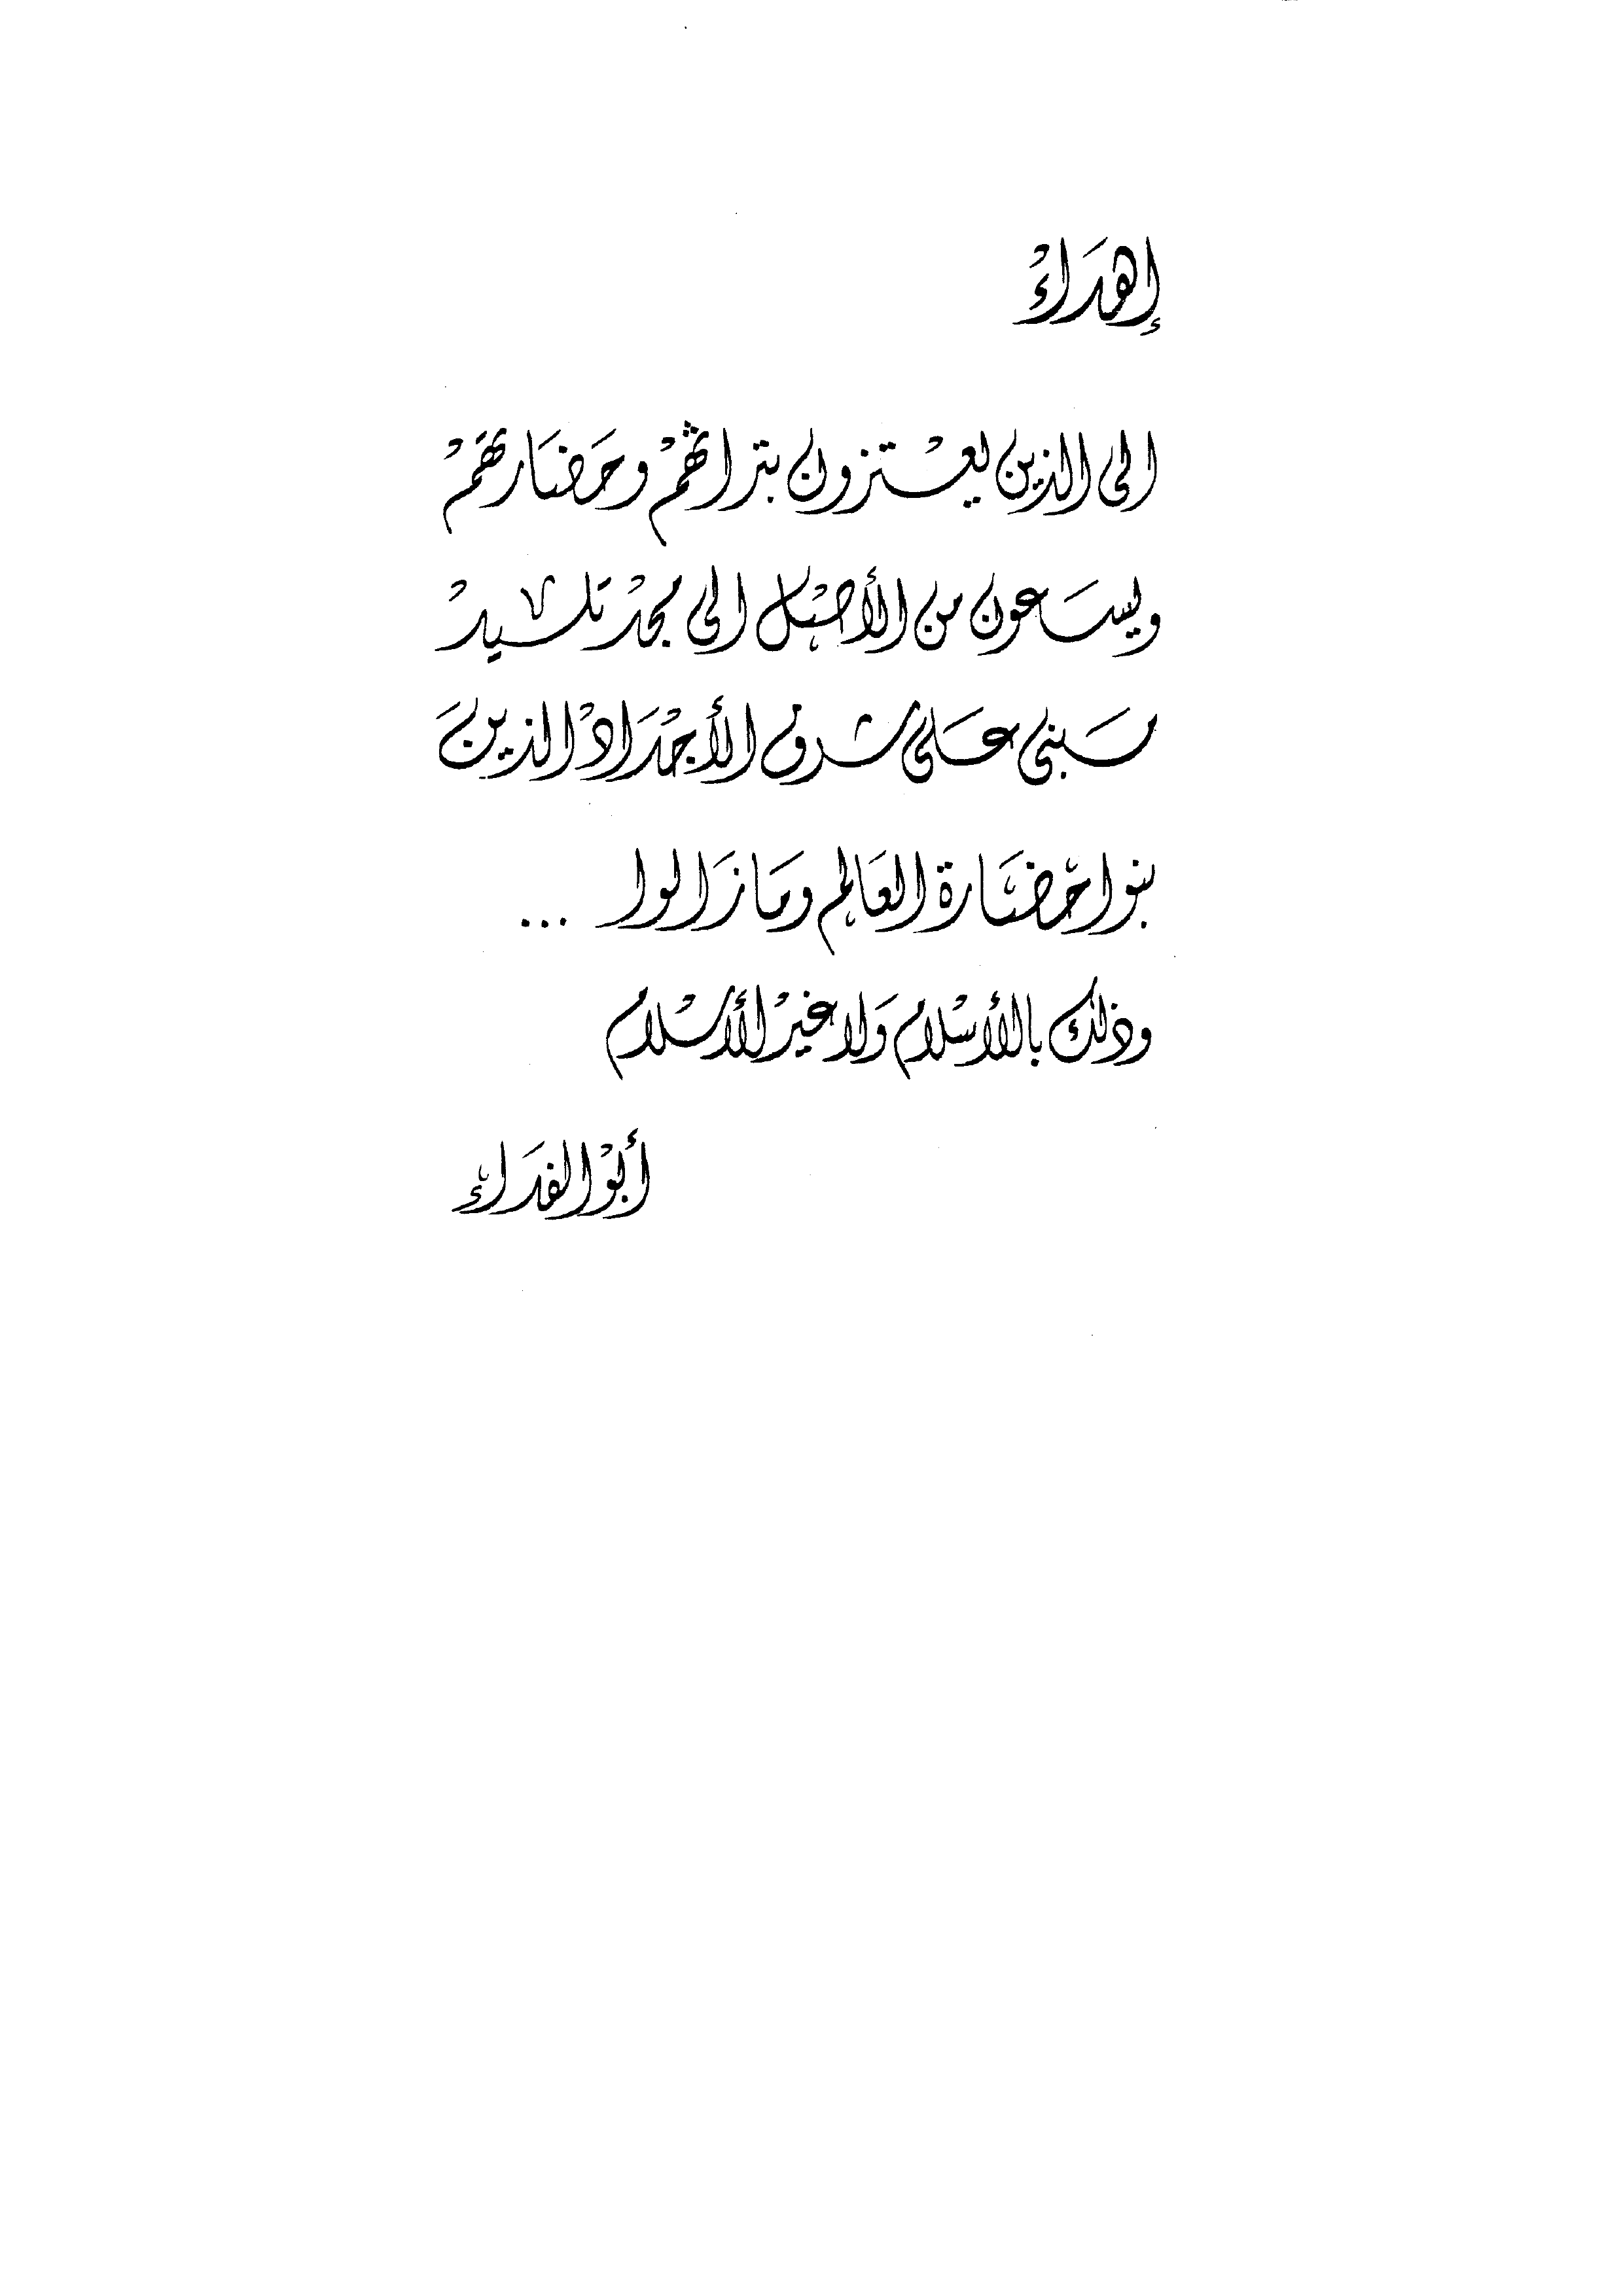 إهداء
الى الذين يعتزون بتراثهم وحضارتهم
ويسعون من الأصل الى مجد تشيد
مبنى على شرف الأجداد الذين
بنوا حضارة العالم وما زالوا ...
وذلك بالأسلام ولا غير الأسلام
أبو الفداء